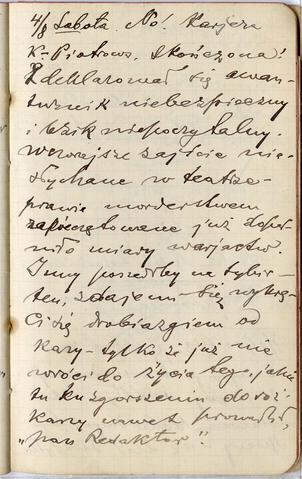 4/8 Sobota. No! Karjera
K-Piotrowo. Skończona!
Zdeklarował się awan-
turnik niebezpieczny
i bzik niepoczytalny.
Wczorajsze zajście nie-
słychane w teatrze
prawie morderstwem
zapieczętowane już dopeł-
niło miary warjactw.
Inny poszedłby na Sybir-
ten, zdajemi się, wykrę-
ci się drobiazgiem od
kary - tylko że już nie
wróci do życia tego, jakie
tu ku zgorszeniu dorož
karzy nawet prowadził,
"pan Redaktor".